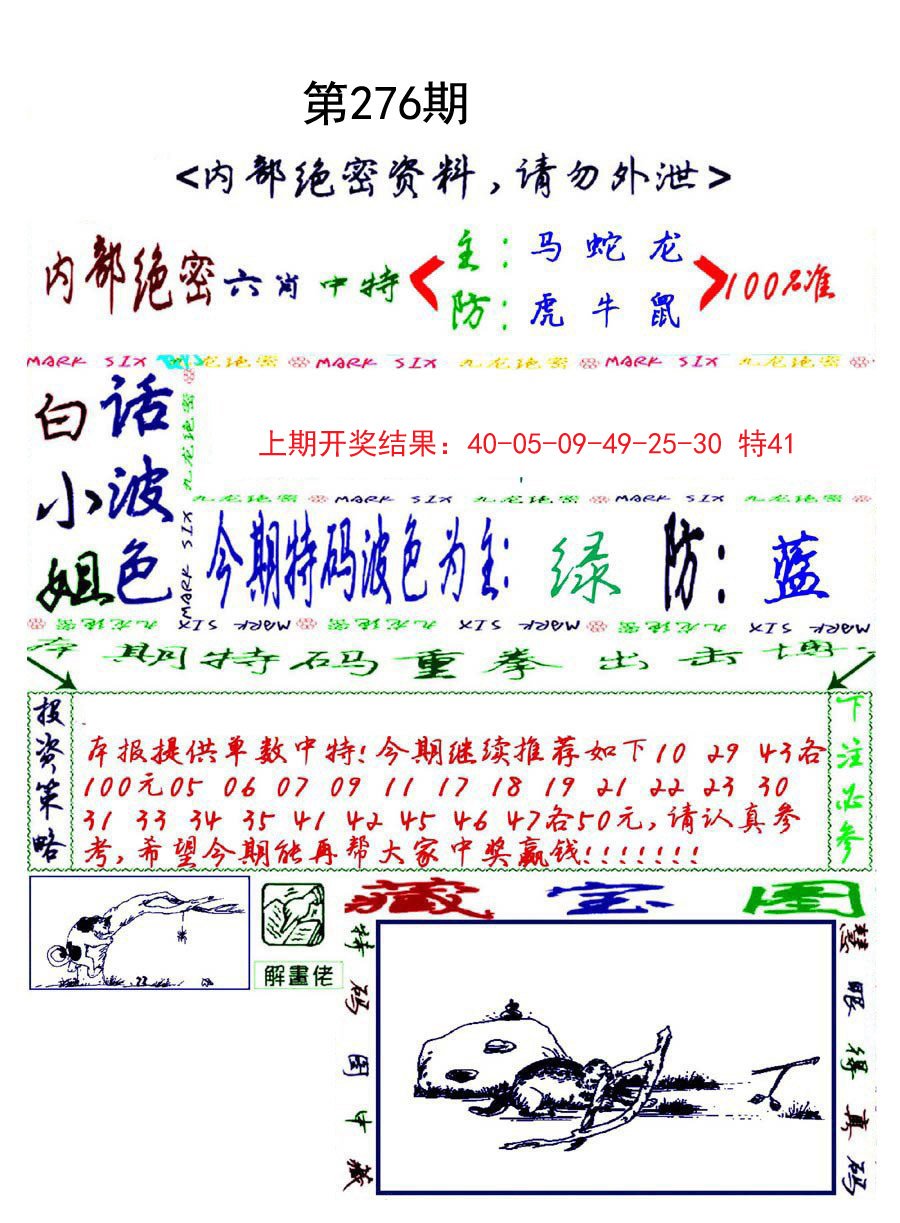 第276期
<内部绝密资料,请勿外泄>
内部绝密六肖中特
主:马 蛇 龙
防:虎 牛 鼠
100%准
MARK SIX 九龙绝密 MARK SIX 九龙绝密 MARK SIX 九龙绝密
白小姐
话波色
九龙绝密
MARK SIX
上期开奖结果：40-05-09-49-25-30 特41
九龙绝密 MARK SIX 九龙绝密 MARK SIX 九龙绝密
今期特码波色为主: 绿 防: 蓝
九龙绝密 MARK SIX 九龙绝密 MARK SIX 九龙绝密 MARK SIX
本期特码重拳出击
投资策略
本报提供单数中特!今期继续推荐如下10 29 43各
100元05 06 07 09 11 17 18 19 21 22 23 30
31 33 34 35 41 42 45 46 47各50元,请认真参
考,希望今期能再帮大家中奖赢钱!!!!!!!
下注必参
解畫佬
藏宝图
特码图中藏
慧眼得真码